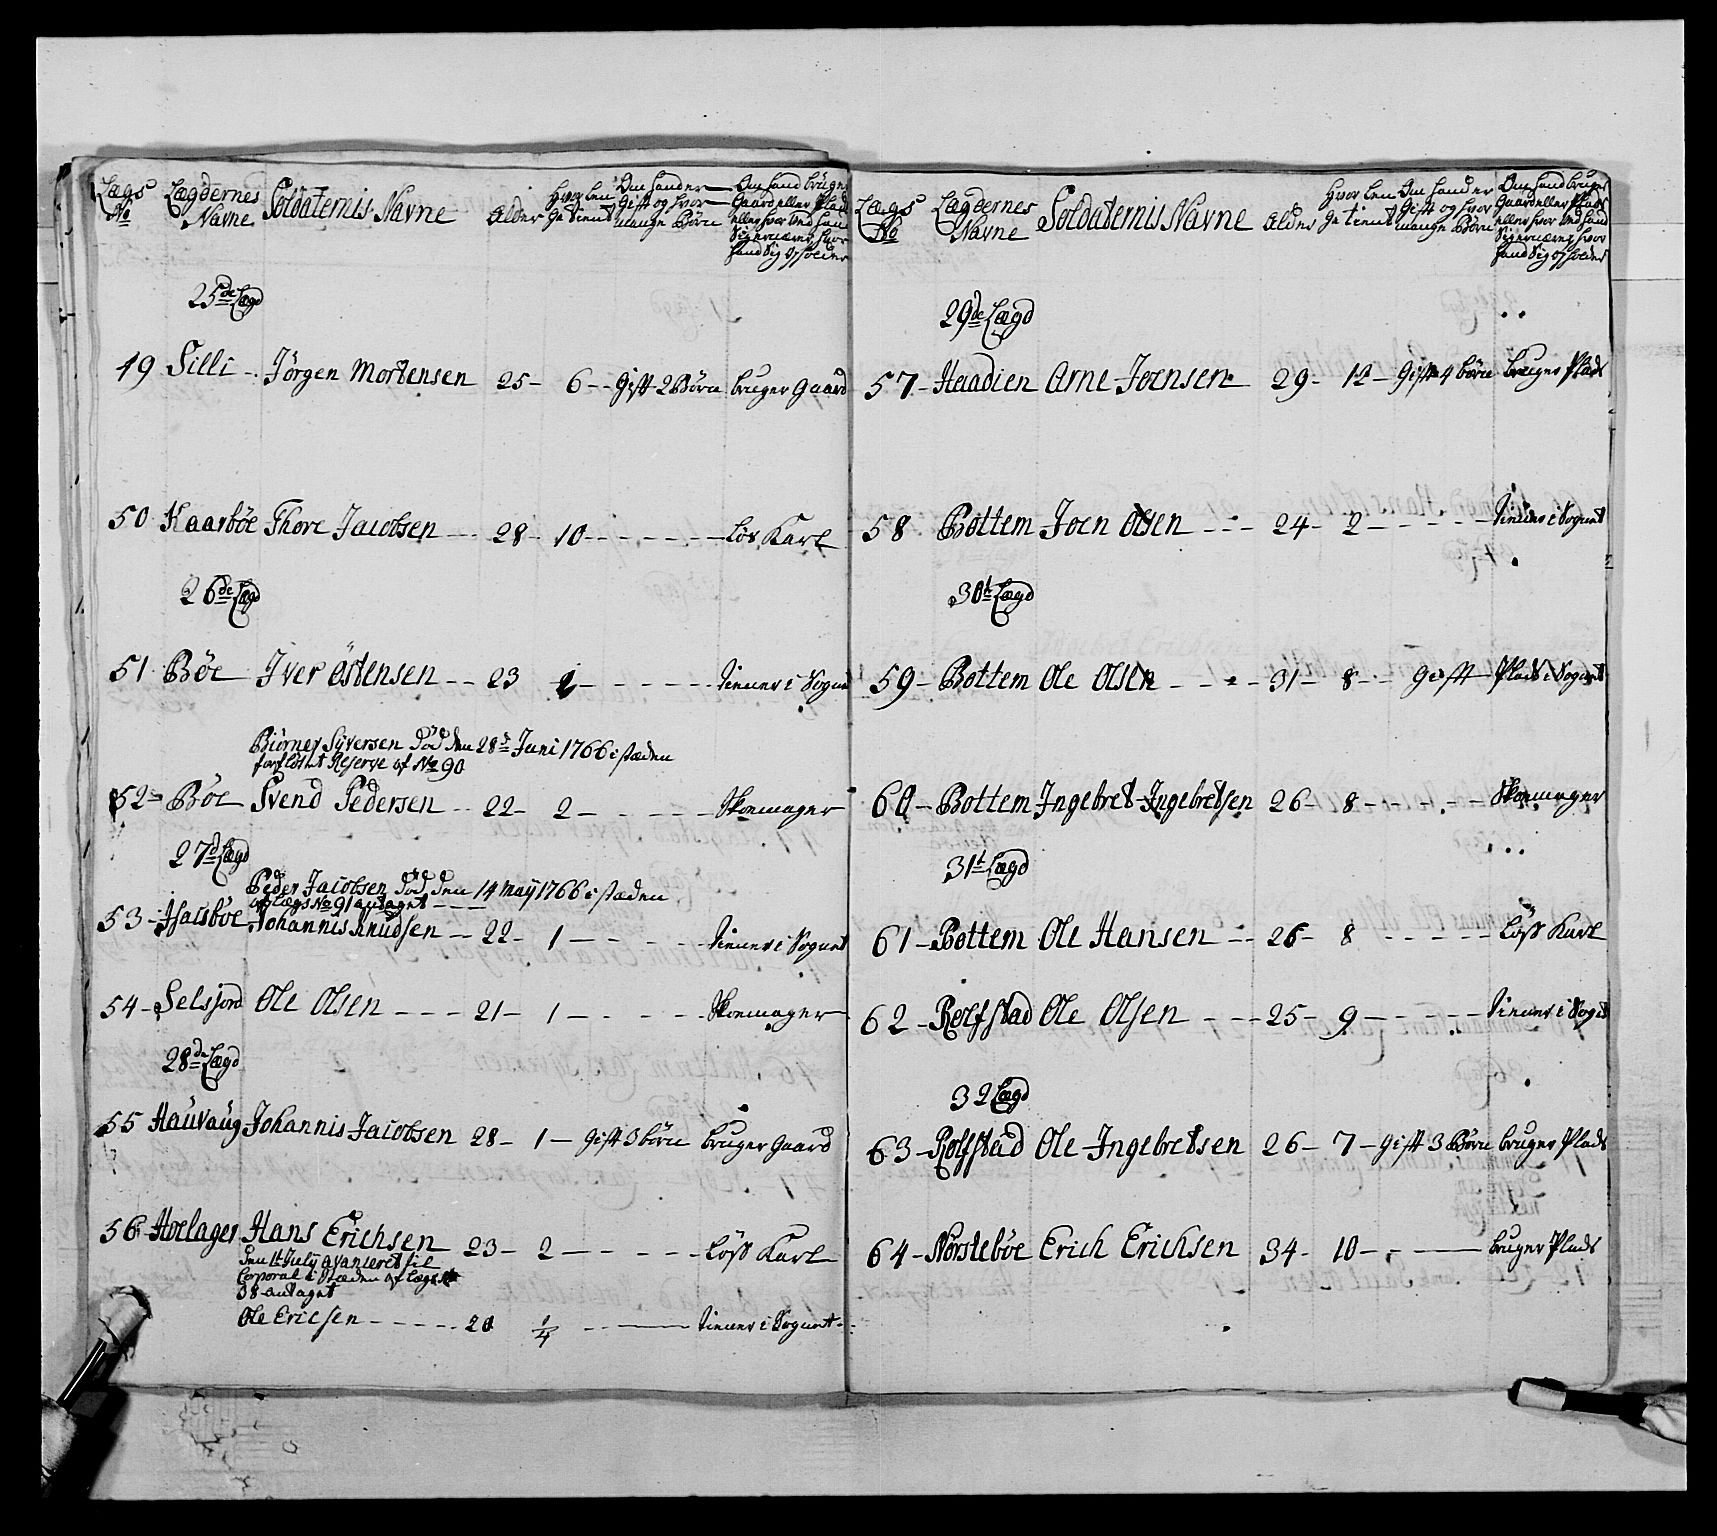 Lægs No
Lægdernes Navne
Soldaternis Navne
Alder
Hvor Længe tient
Om hand er Gift og hvor mange Børn
Om hand bruger Gaard eller Plads eller hvor Ved hand Sig ernærer hvor hand Sig opholder
25de Lægd
49 Silli - Jörgen Mortensen 25 - 6 - Gift 2 Børn bruger Gaard
50 Kaarböe Thore Jacobsen - 28 - 10 - Løs Karl
26de Lægd
51 Böe Iver Östensen - 23 - Tiener i Sognet
Biörner Siversen död den 28de Juni 1766 i stæden
Reserve af No 90
52 - Böe Svend Pedersen - 22 - 2 - Skoemager
27d Lægd
Peder Jacobsen död den 14 May 1766 i stæden
af Lægs No 91 antaget
53 - Johannis Knudsen - 22 - 1 - Tiener i Sognet
54 - Selsjord Ole Olsen - 21 - 1 - Skoemager
28de Lægd
55 Hauvaug Johannis Jacobsen 28 - 1 - Gift 3 børn bruger Gaard
56 - Hoelager Hans Erichsen 23 - 2 - Löss Karl
Den 1t July avanseret til
Corporal i Stæden af Lægs No
38 antaget
Ole Ericsen - 20 1/4 - Tiener i Sognet
Lægs No
Lægdernes Navne
Soldaternis Navne
Alder
Hvor Længe tient
Om hand er Gift og hvor mange Børn
Om hand bruger Gaard eller Plads eller hvor Ved hand Sig ernærer hvor hand Sig opholder
29de Lægd
57 - Haadien Arne Joensen 29 - 12 - Gift 4 börn bruger Plads
58 Bottem Joen Olsen - 24 - 2 - Tiener i Sognet
30t Lægd
59 - Bottem Ole Olsen - 31 - 8 - Gift Plads i Sognet
60 - Bottem Ingebret Ingebretsen 26 - 8 - Skoemager
31t Lægd
61 - Bottem Ole Hansen - 26 - 8 - Löss Karl
62 - Rolfstad Ole Olsen - 25 - 9 - Tiener i Sognet
32 Lægd
63 - Rolfstad Ole Ingebretsen 26 - 7 - Gift 3 Börn bruger Plads
64 - Norsteböe Erich Erichsen 34 - 10 - bruger Plads